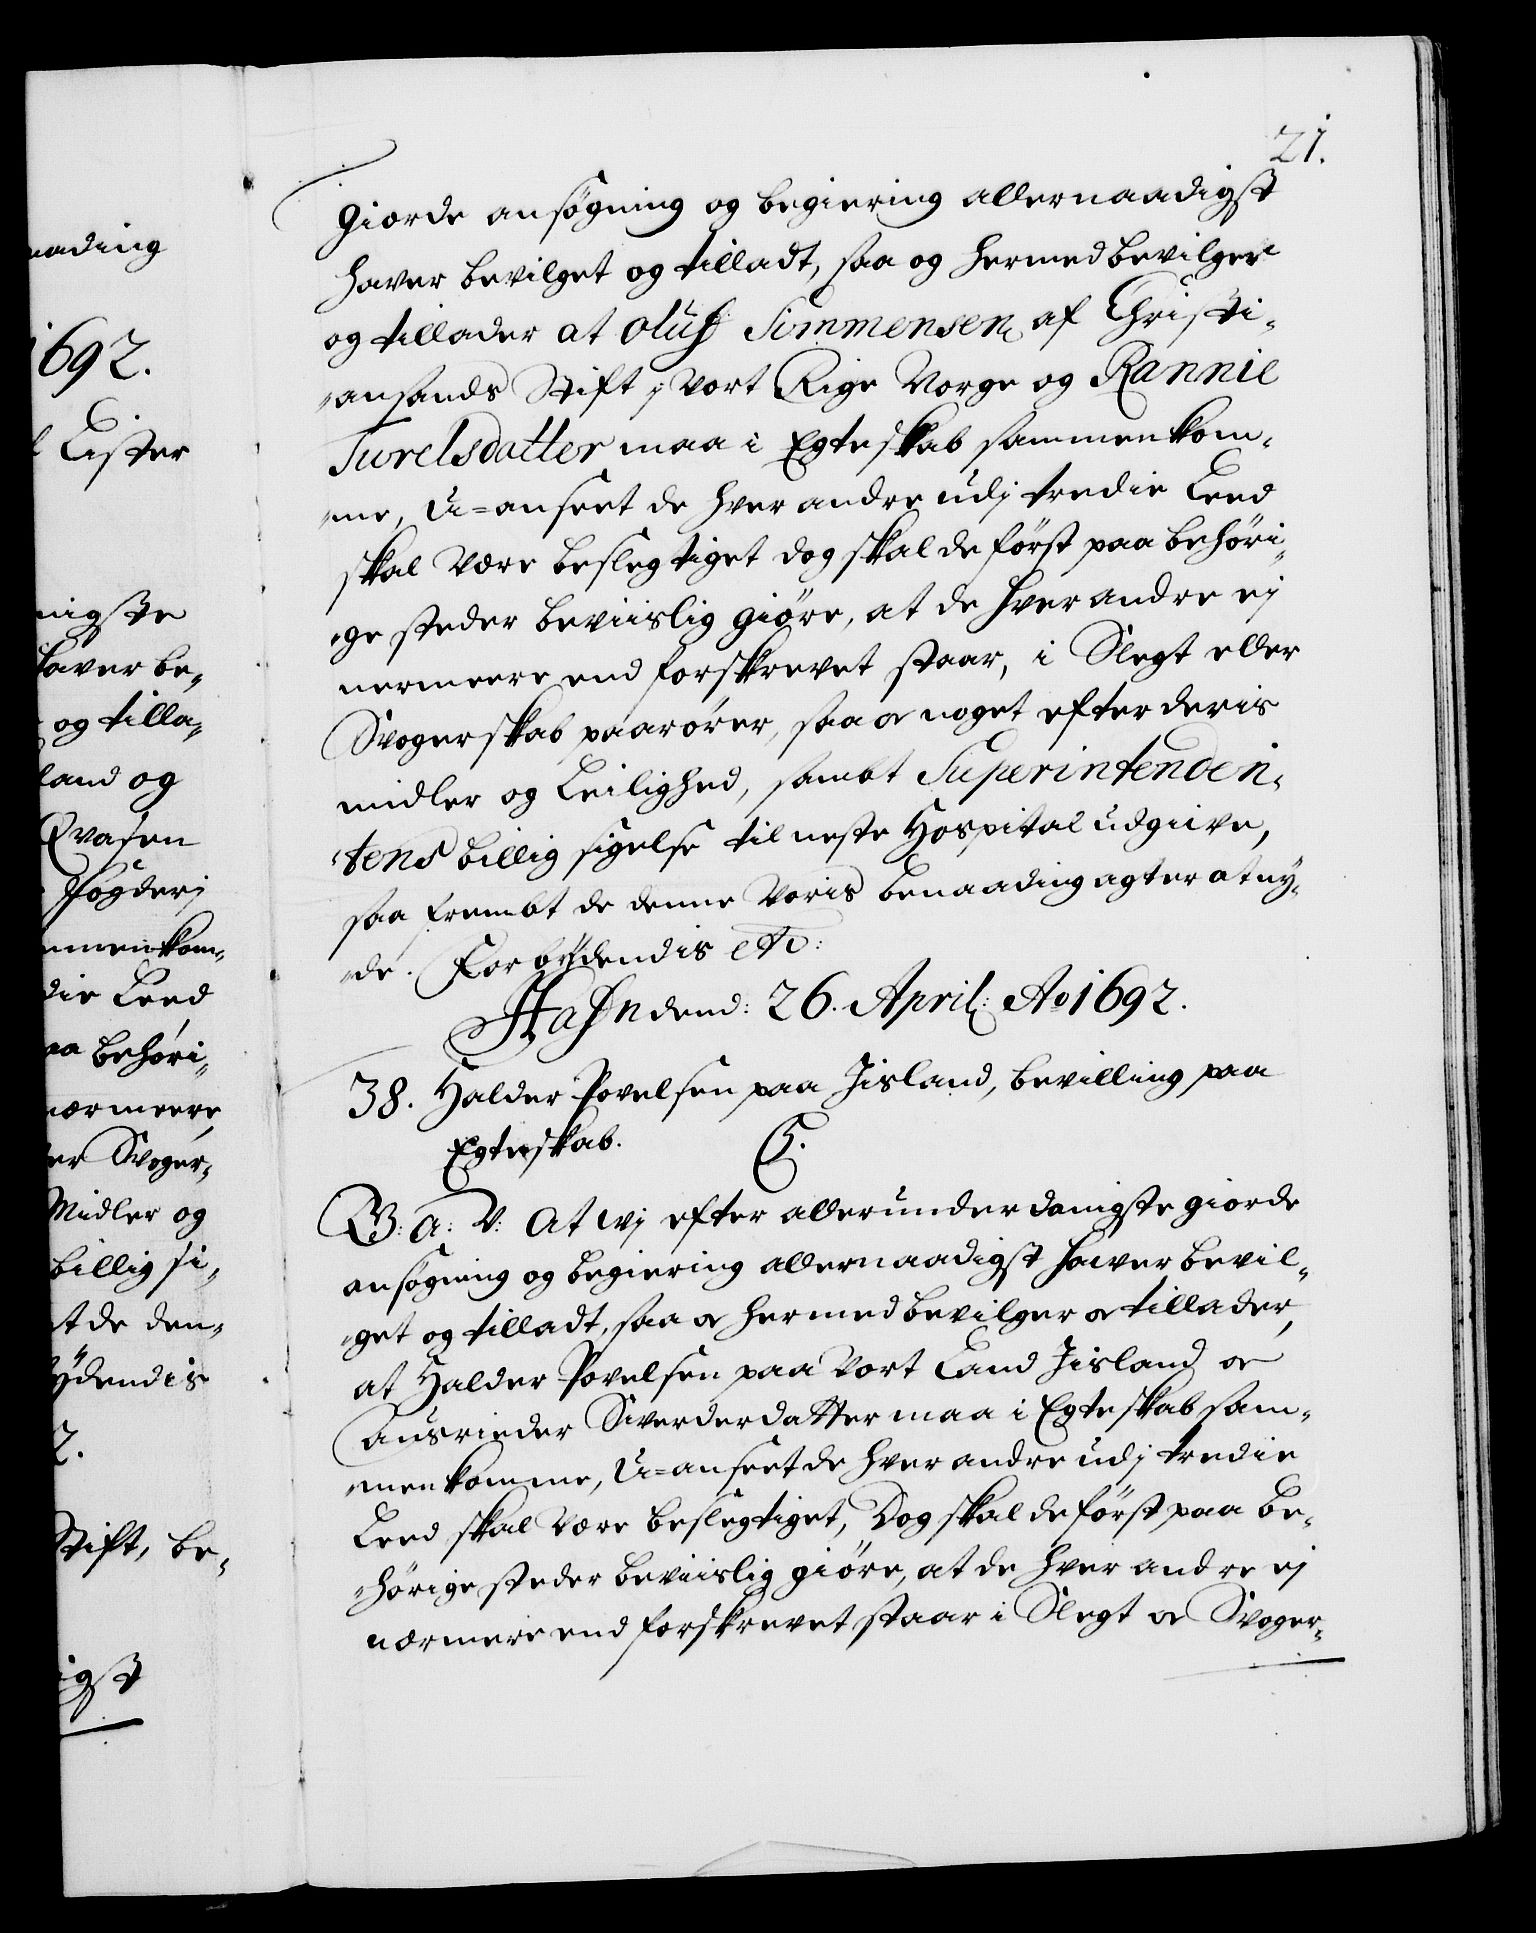 21.
giorde ansøgning og begiering allernaadigst
hafver bevilget og tilladt, saa og hermed bevilger
og tillader at Oluf Simmensen af Christi-
ansands Stift j vort Rige Norge og Rannie
Turelsdatter maa i Egteskab sammenkom-
me, U=anseet de hver andre udj tredie Leed
skal være beslegtiget dog skal de först paa behöri-
ge steder beviislig giöre, at de hver andre ej
nermeere end forskrevet staar, i Slegt eller
Svogerskab paarörer, saa og noget efter deris
midler og Leilighed, sambt Superintenden-
tens billig sigelse til neste Hospital udgiive,
saa frembt de denne Voris benaading agter at ny-
de. Forbÿdendis etc:
Hafn dend: 26. April: Ao 1692.
38. Halder Povelsen paa Jisland, bevilling paa
Egteskab. G.
G: a: V: At wj efter allerunderdanigste giorde
ansøgning og begiering allernaadigst hafver bevil-
get og tilladt, saa og hermed bevilger og tillader,
at Halder Povelsen paa Vort Land Jisland og
Ausrieder Siverderdatter maa i Egteskab sam-
menkomme, U=anseet de hver andre udj tredie
Leed skal være beslegtiget, Dog skal de först paa be-
hörige steder beviislig giöre, at de hver andre ej
nærmere end forskrevet staar i Slegt og Svoger-
naading
1692.
Lister
nigste
hafver be-
og tilla-
land og
Qvasen
Fögderj
mmenkom-
die Leed
aa behöri-
nærmeere
er Svoger-
Midler og
billig si-
t de den-
ÿdendis
2.
Stift, be-
igst